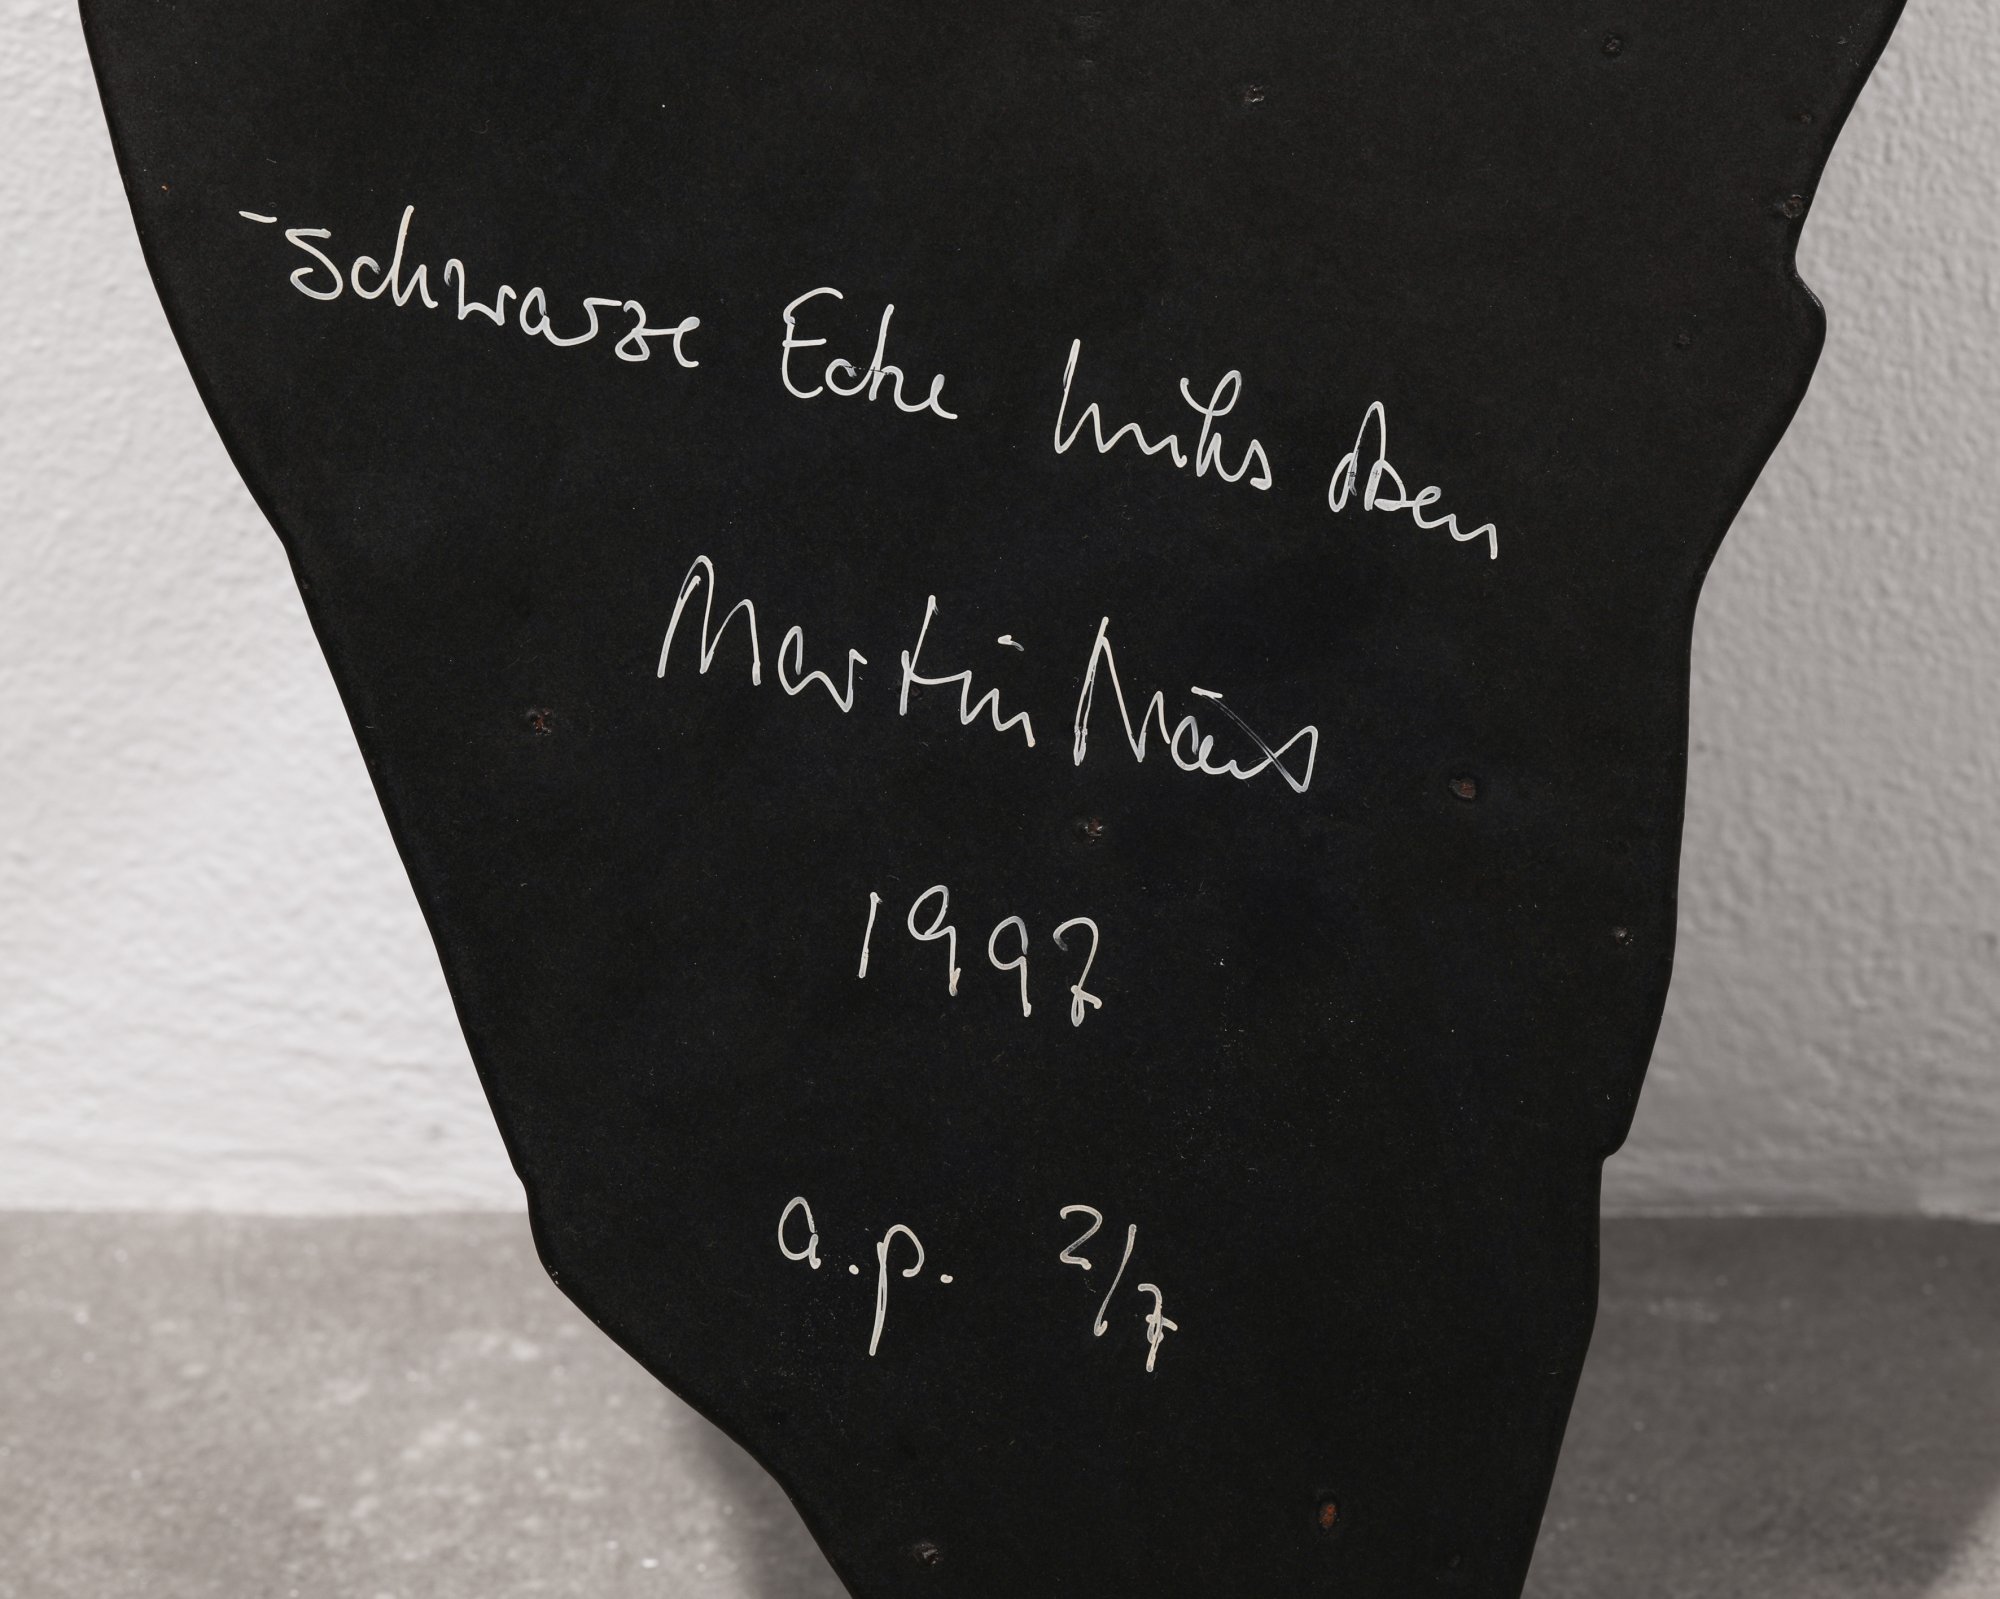 - Schwarze Ecke links oben
Martin
1997
a.p. 2/7